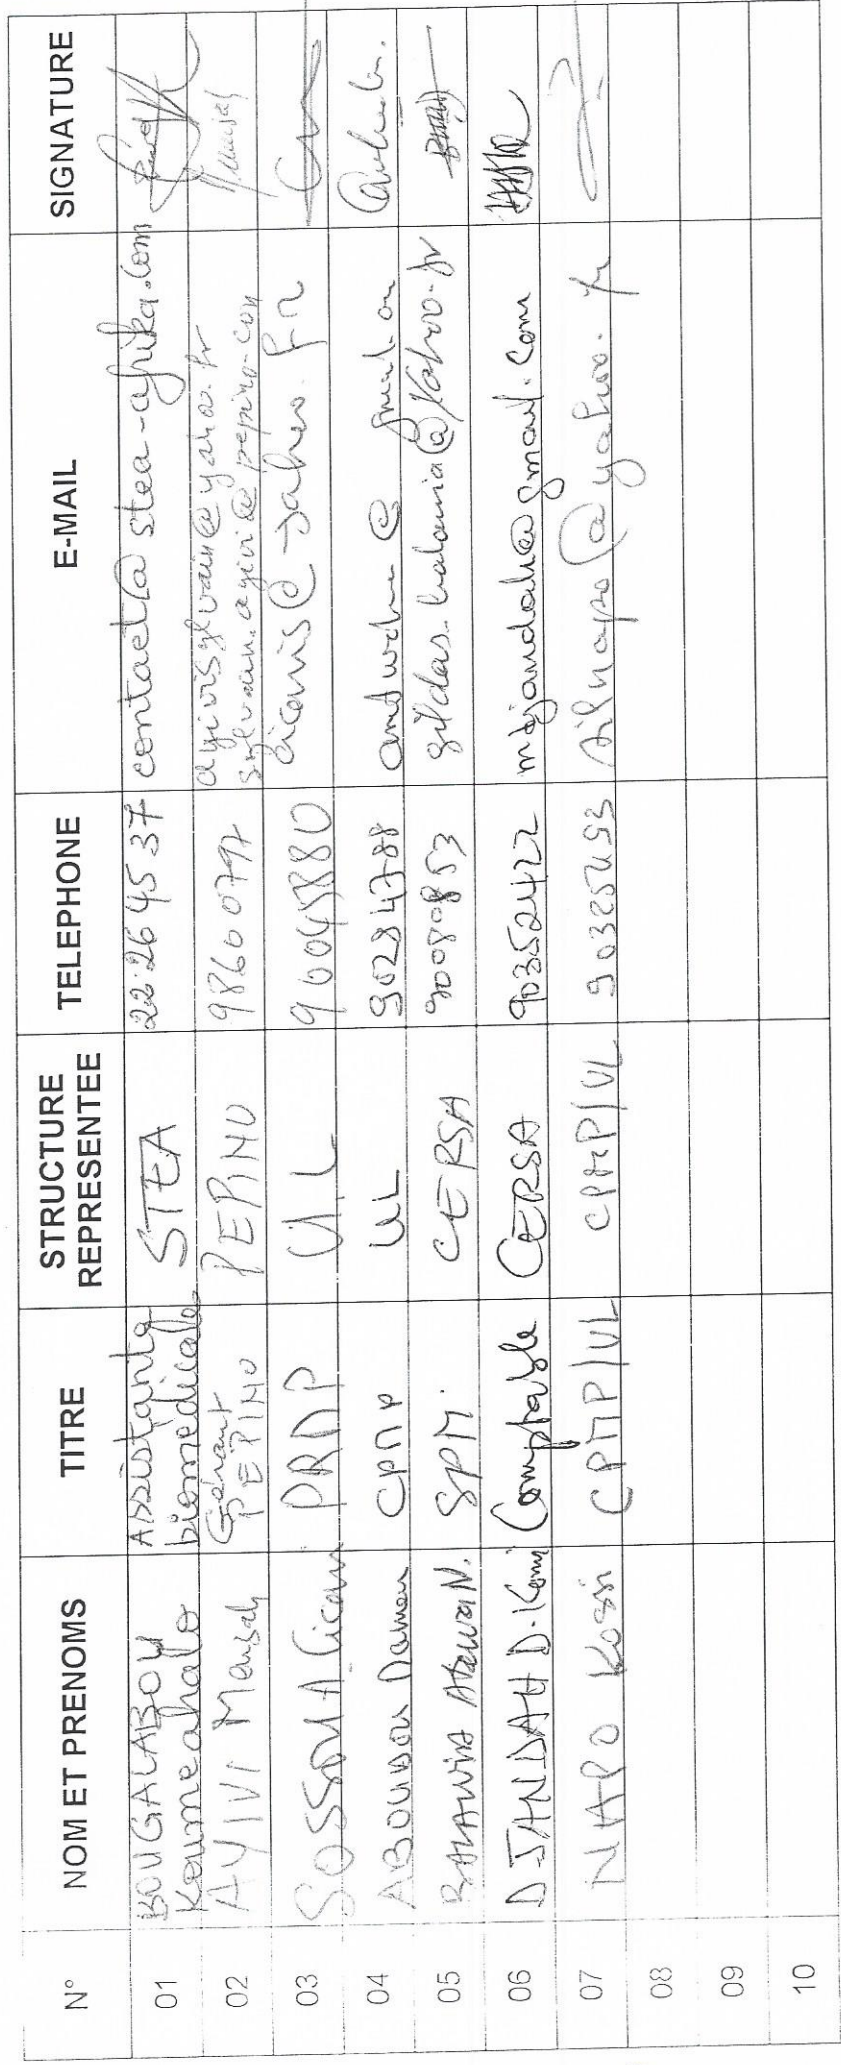 N° NOM ET PRENOMS TITRE STRUCTURE REPRESENTEE TELEPHONE E-MAIL SIGNATURE
01 BOUGALABOU Koumeahalo Assistante biomédicale STEA 22 26 45 37 contact@stea-afrika.com
02 AYIVI Mensah Gérant PEPINO PEPINO 98600792 ayivisylvain@yahoo.fr
sylvain.ayivi@pepino.com
03 SOSSOU PRMP UL 96045880
04 ABOUDOU Damen CPMP UL 90284788
05 BALAWIA N. SPM. CERSA 90080853 gildas_balawia@yahoo.fr
06 DJANDAH D. Komi Comptable CERSA 90352422 mbjandah@gmail.com
07 NAPO Kossi CPMP/UL CPMP/UL 90325453 silnapo@yahoo.fr
08
09
10